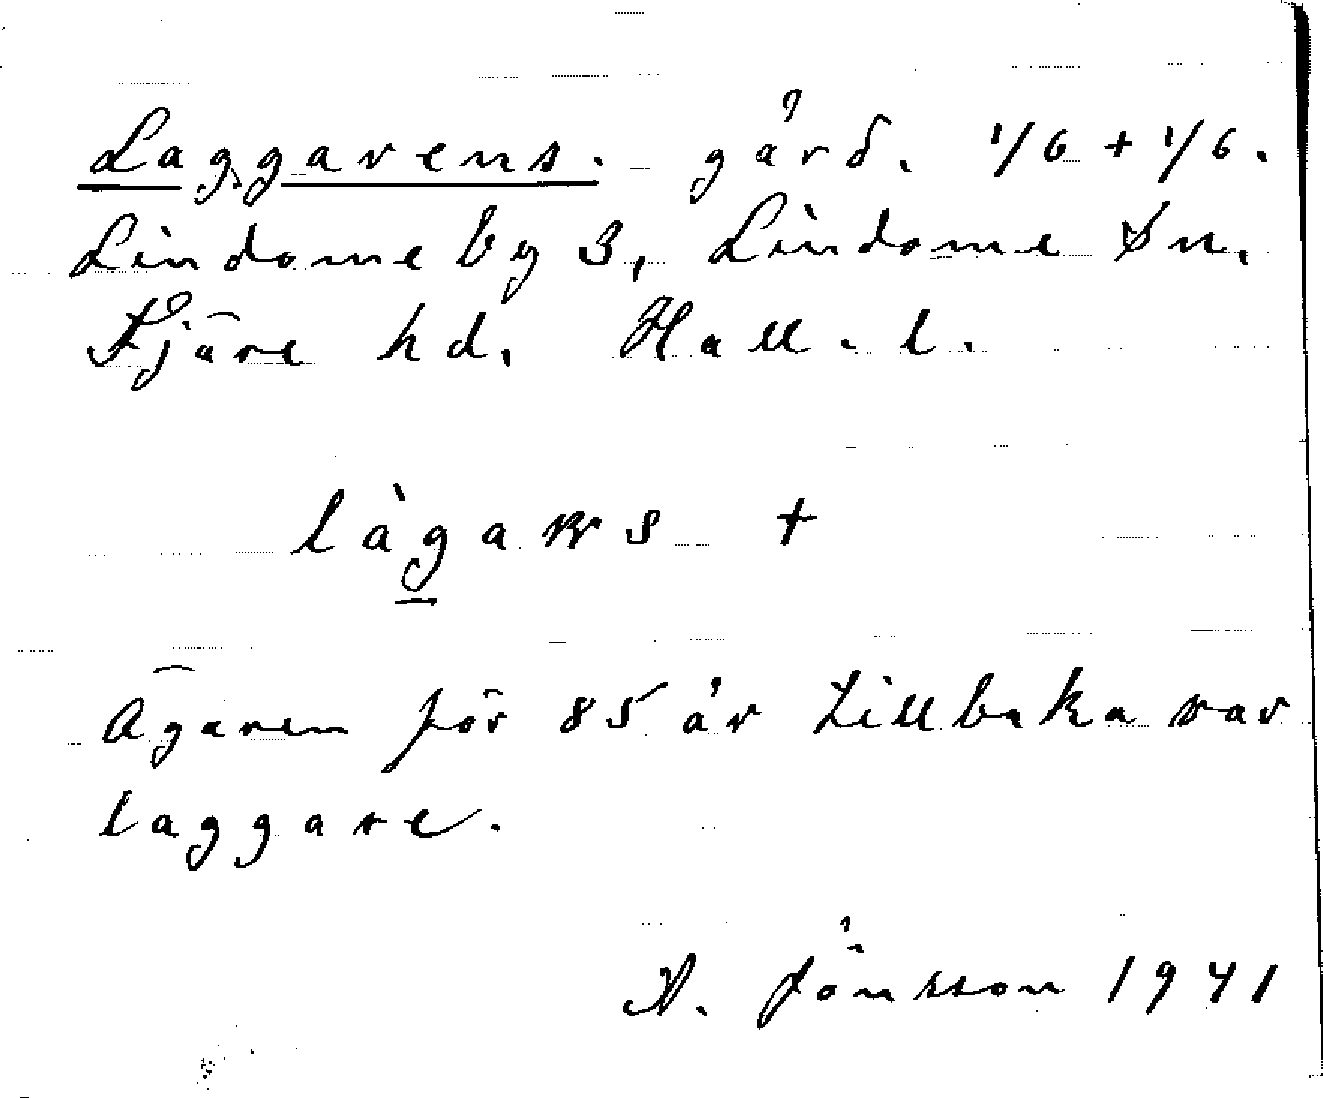 Laggarens. gård. 1/6 + 1/6.
Lindome by 3, Lindome Sn.
Fjäre hd. Hall. l.
+
Ägaren för 85 år tillbaka var
laggare.
A. Jönsson 1941